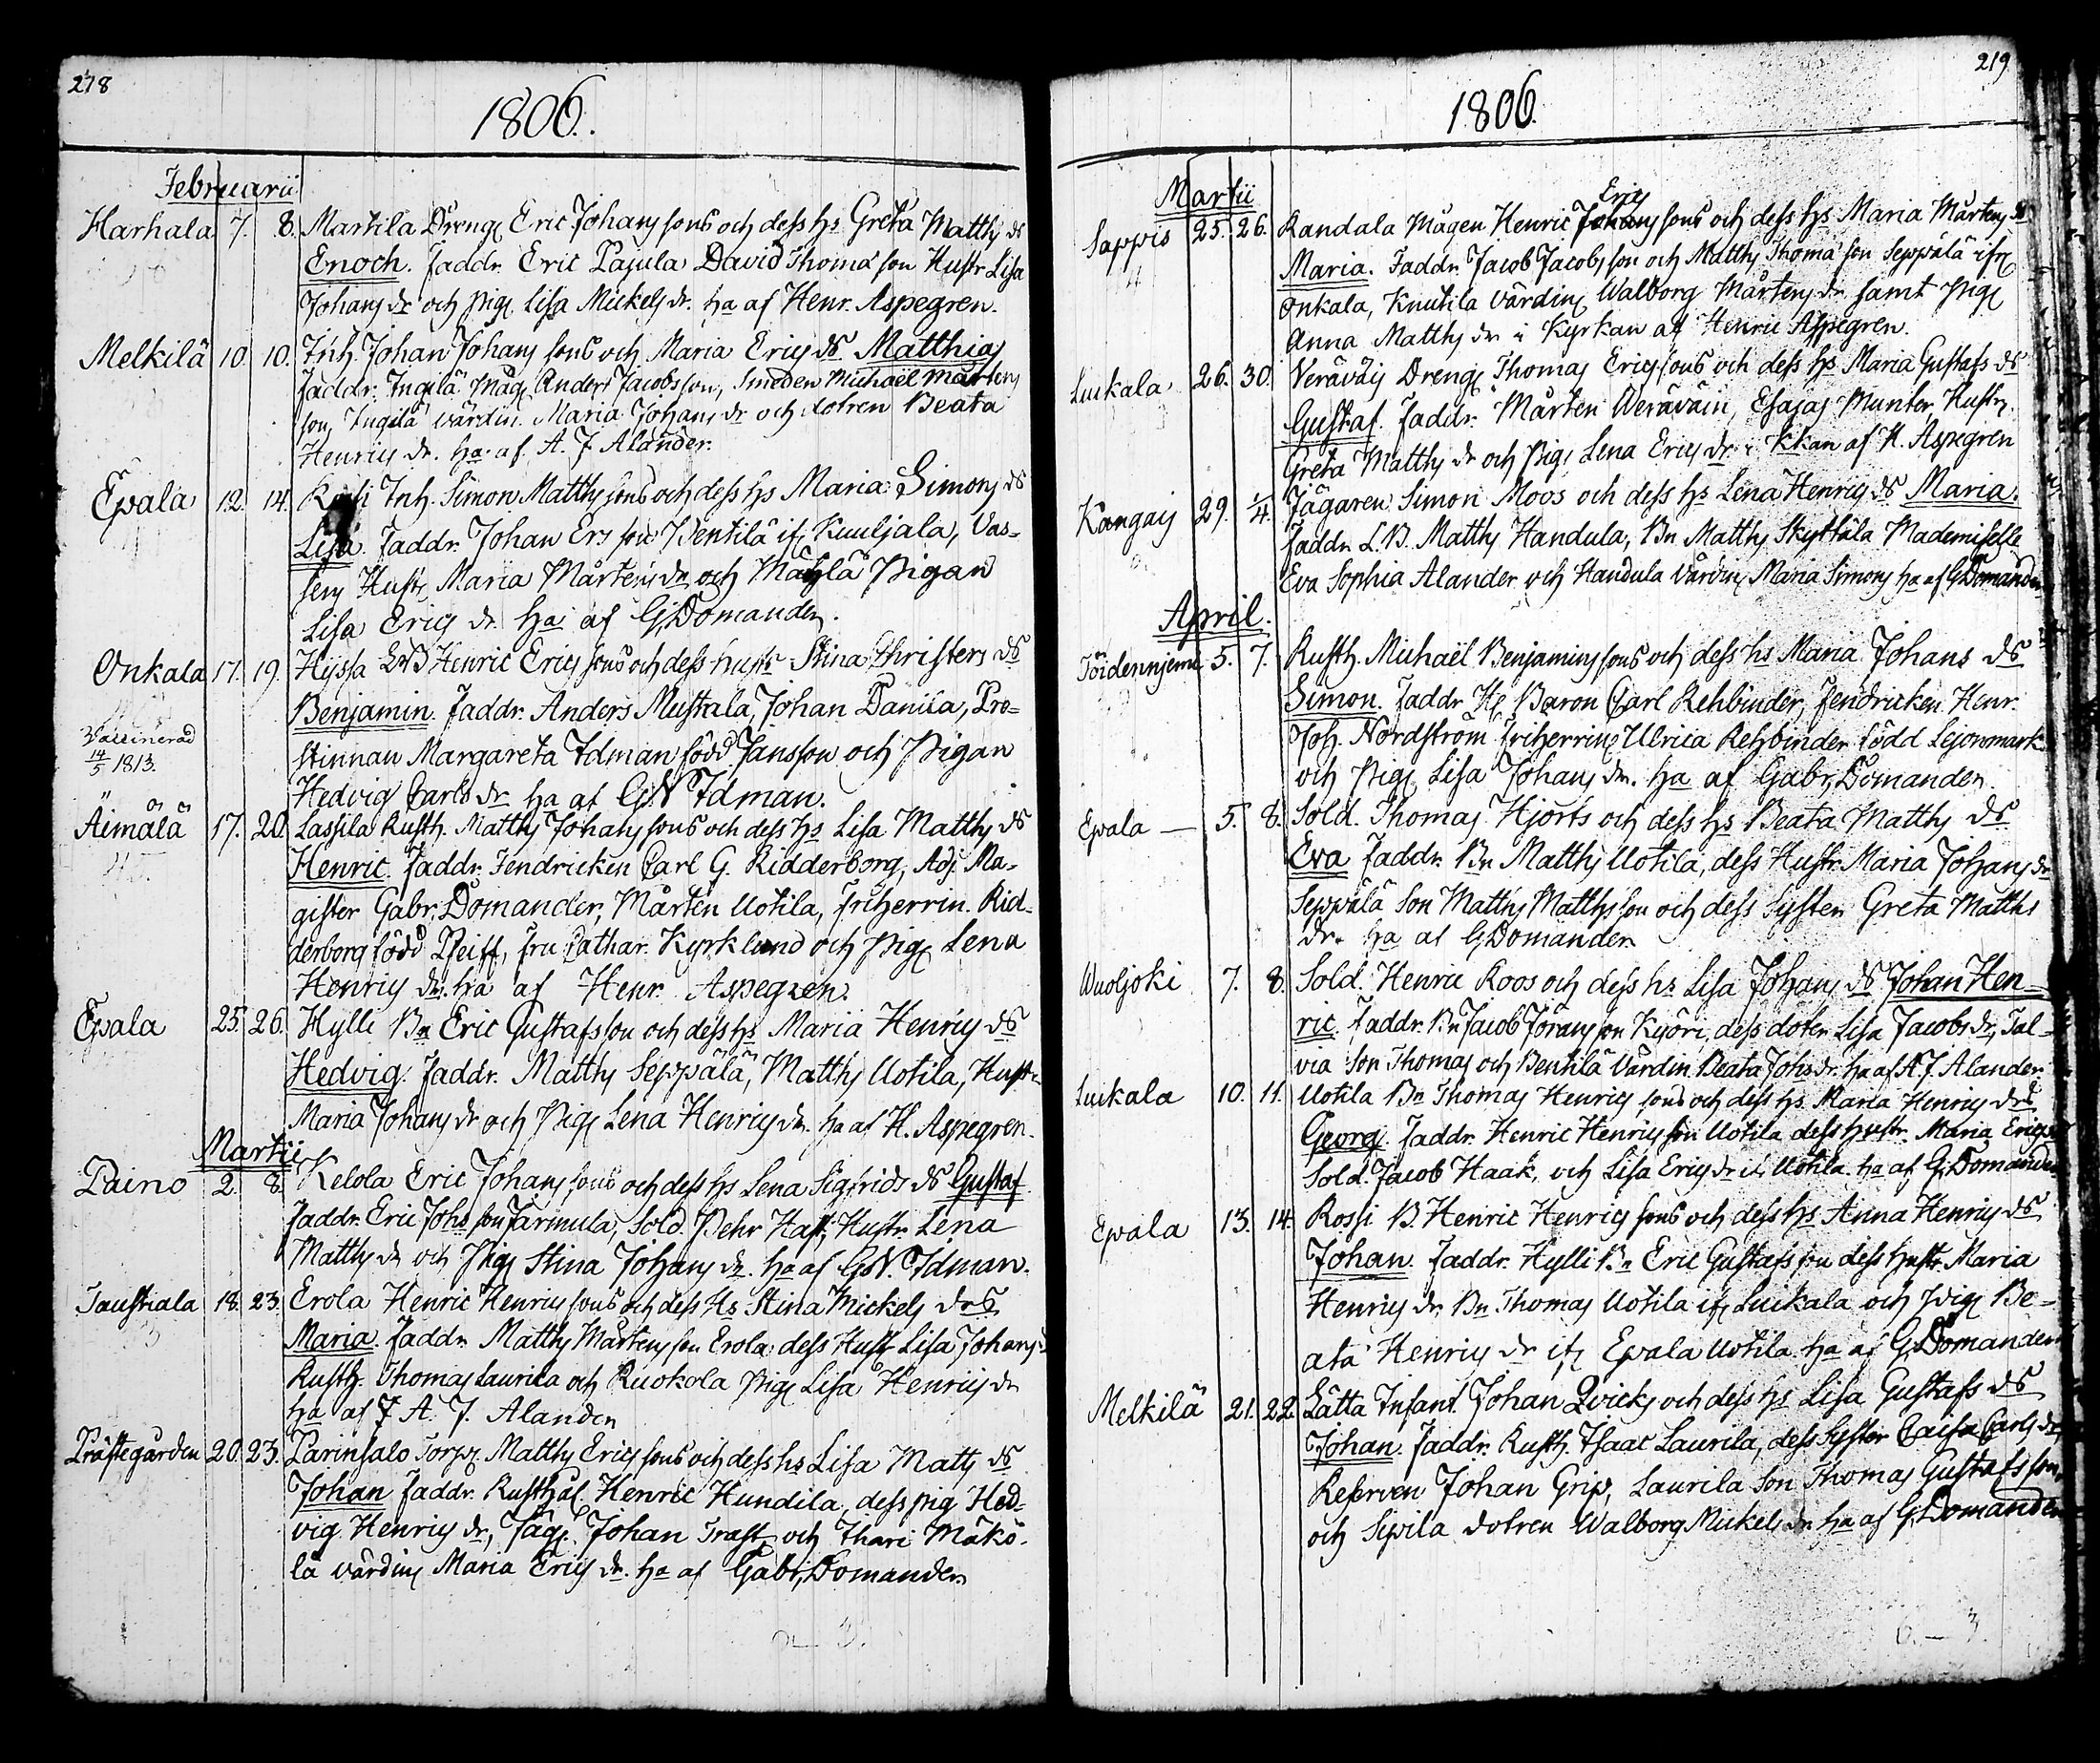 218
1806.
Februarii
Harhala 7. 8. Martila Dreng Eric Johans sons och dess hs Greta Matths ds
Enoch. Faddr. Eric Pajula David Thomæ son Hustr Lisa
Johans dr och pig. Lisa Mickels dr. ha af Henr. Aspegren.
Melkilä 10. 10. Inh. Johan Johans sons och Maria Erics ds Matthias
Faddr. Ingilä Måg Anders Jacobsson, Smeden Michaël Mårtens
son, Ingilä värdin. Maria Johans dr och dotren Beata
Henrics dr. ha af A. J. Alander.
Epala 12. 14. Inh. Simon Matths sons och dess hs Maria Simons ds
Lisa. Faddr. Johan Ers son Pentilä ifr Kuuljala, Vas-
sens Hustr Maria Mårtens dr och Pigan
Lisa Erics dr ha af G. Domander.
Onkala 17. 19. Hyssa LB Henric Erics sons och dess hustr Stina Christers ds
Benjamin. Faddr. Anders Mustala, Johan Danila, Pro-
stinnan Margareta Idman född Jansson och Pigan
Vaccinerad
14/5 1813.
Hedvig Carls dr ha af G. N Idman.
Äimälä 17. 20. Lassila Rusth. Matths Johans sons och dess hs Lisa Matths ds
Henric. Faddr. Fendricken Carl G. Ridderborg, Adj. Ma-
gister Gabr. Domander, Mårten Uotila, Friherrin. Rid-
derborg född Pfeiff, Fru Cathar. Kyrklund och pig. Lena
Henrics dr. ha af Henr. Aspegren.
Epala 25. 26. Hylli Bn Eric Gustafsson och dess hs Maria Henrics ds
Hedvig. Faddr. Matths Seppälä, Matths Uotila, Hustr.
Maria Johans dr och Pig. Lena Henrics dr. ha af H. Aspegren.
Martii
Paino 2. 8. Kelola Eric Johans sons och dess hs Lena Sigfrids ds Gustaf
Faddr. Eric Johs son Jarmula, Sold. Pehr Hast, Hustr. Lena
Matths dr och Pig. Stina Johans dr. ha af G. N. Idman.
Taustiala 18. 23. Erola Henric Henrics sons och dess Hs Stina Mickels drs
Maria. Faddr. Matths Mårtens son Erola, dess Hustr Lisa Johans
Rusth. Thomas Laurila och Ruokola pig. Lisa Henrics dr
ha af A. J. Alander
Prästegården 20. 23. Parinsalo Torp. Matths Erics sons och dess hs Lisa Matts ds
Johan Faddr. Rusthål. Henric Hundila, dess pig Hed-
vig Henrics dr, Jäg. Johan Trast och Ihari Mäkö-
lä värdin Maria Erics dr. ha af Gabr. Domander
219
1806.
Martii
Eric
Sappis 25. 26. Randala Mågen Henric Johans sons och dess hs Maria Mårtens ds
Maria. Faddr. Jacob Jacobs son och Matths Thomæ son Seppälä ifr
Onkala, Knutila värdin Walborg Mårtens dr samt Pig.
Anna Matths dr i Kyrkan af Henric Aspegren.
Luikala 26. 30. Dreng Thomas Erics sons och dess hs Maria Gustafs ds
Gustaf. Faddr. Mårten Weräväin, Esajas Munter, Hustr.
Greta Matths dr och pig. Lena Erics dr i kkan af H. Aspegren
Kangais 29. 1/4. Jägaren Simon Moos och dess hs Lena Henrics ds Maria.
Faddr. L. B. Matths Handula, Bn Matths Skyttälä Mademiselle
Eva Sophia Alander och Handula värdin Maria Simons ha af G. Domander
April.
Toidenniemi 5. 7. Rusth. Michaël Benjamins sons och dess hs Maria Johans ds
Simon. Faddr Hr Baron Carl Rehbinder, Fendricken Henr.
Joh. Nordström Friherrin Ulrica Rehbinder född Lejonmark
och Pig. Lisa Johans dr. ha af Gabr. Domander.
Epala — 5. 8. Sold. Thomas Hjorts och dess hs Beata Matths ds
Eva Faddr. Bn Matths Uotila, dess Hustr. Maria Johans dr
Seppälä Son Matths Matths son och dess Syster Greta Matths
dr. ha af G. Domander
Wuoljoki 7. 8. Sold. Henric Roos och dess hs Lisa Johans ds Johan Hen-
ric. Faddr. Bn Jacob Jörans son Kyöri, dess doter Lisa Jacobs dr, Tal-
via Son Thomas och Bentilä Värdin Beata Johs dr. ha af A. J. Alander.
Luikala 10. 11. Uotila Bn Thomas Henrics sons och dess hs Maria Henrics drs
Georg. Faddr. Henric Henrics son Uotila dess hustr. Maria Erics
Sold. Jacob Haak, och Lisa Erics dr ifr Uotila ha af G. Domander
Epala 13. 14. Rossi B. Henric Henrics sons och dess hs Anna Henrics ds
Johan. Faddr. Hylli Bn Eric Gustafs son dess hustr Maria
Henrics dr, Bn Thomas Uotila ifr Luikala och pig. Be-
ata Henrics dr ifr Epala Uotila ha af G. Domander
Melkilä 21. 22. Lätta Infant. Johan Qvicks och dess hs Lisa Gustafs ds
Johan. Faddr. Rusth. Isaac Laurila, dess Syster Caisa Carls dr
Reserven Johan Grip, Laurila Son Thomas Gustafs son,
och Sipila dotren Walborg Mickels dr ha af G. Domander
6. — 3.